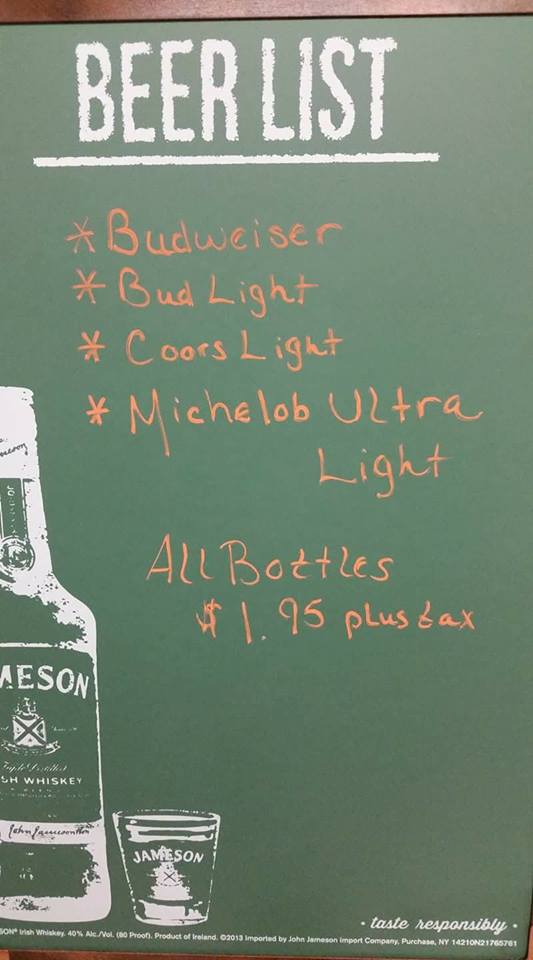 BEER LIST
* Budweiser
* Bud Light
* Coors Light
* Michelob Ultra
Light
All Bottles
$1.95 plus tax
MESON
SH WHISKEY
JAMESON
• taste responsibly •
SON® Irish Whiskey. 40% Alc./Vol. (80 Proof). Product of Ireland. ©2013 Imported by John Jameson Import Company, Purchase, NY 14210N21765761